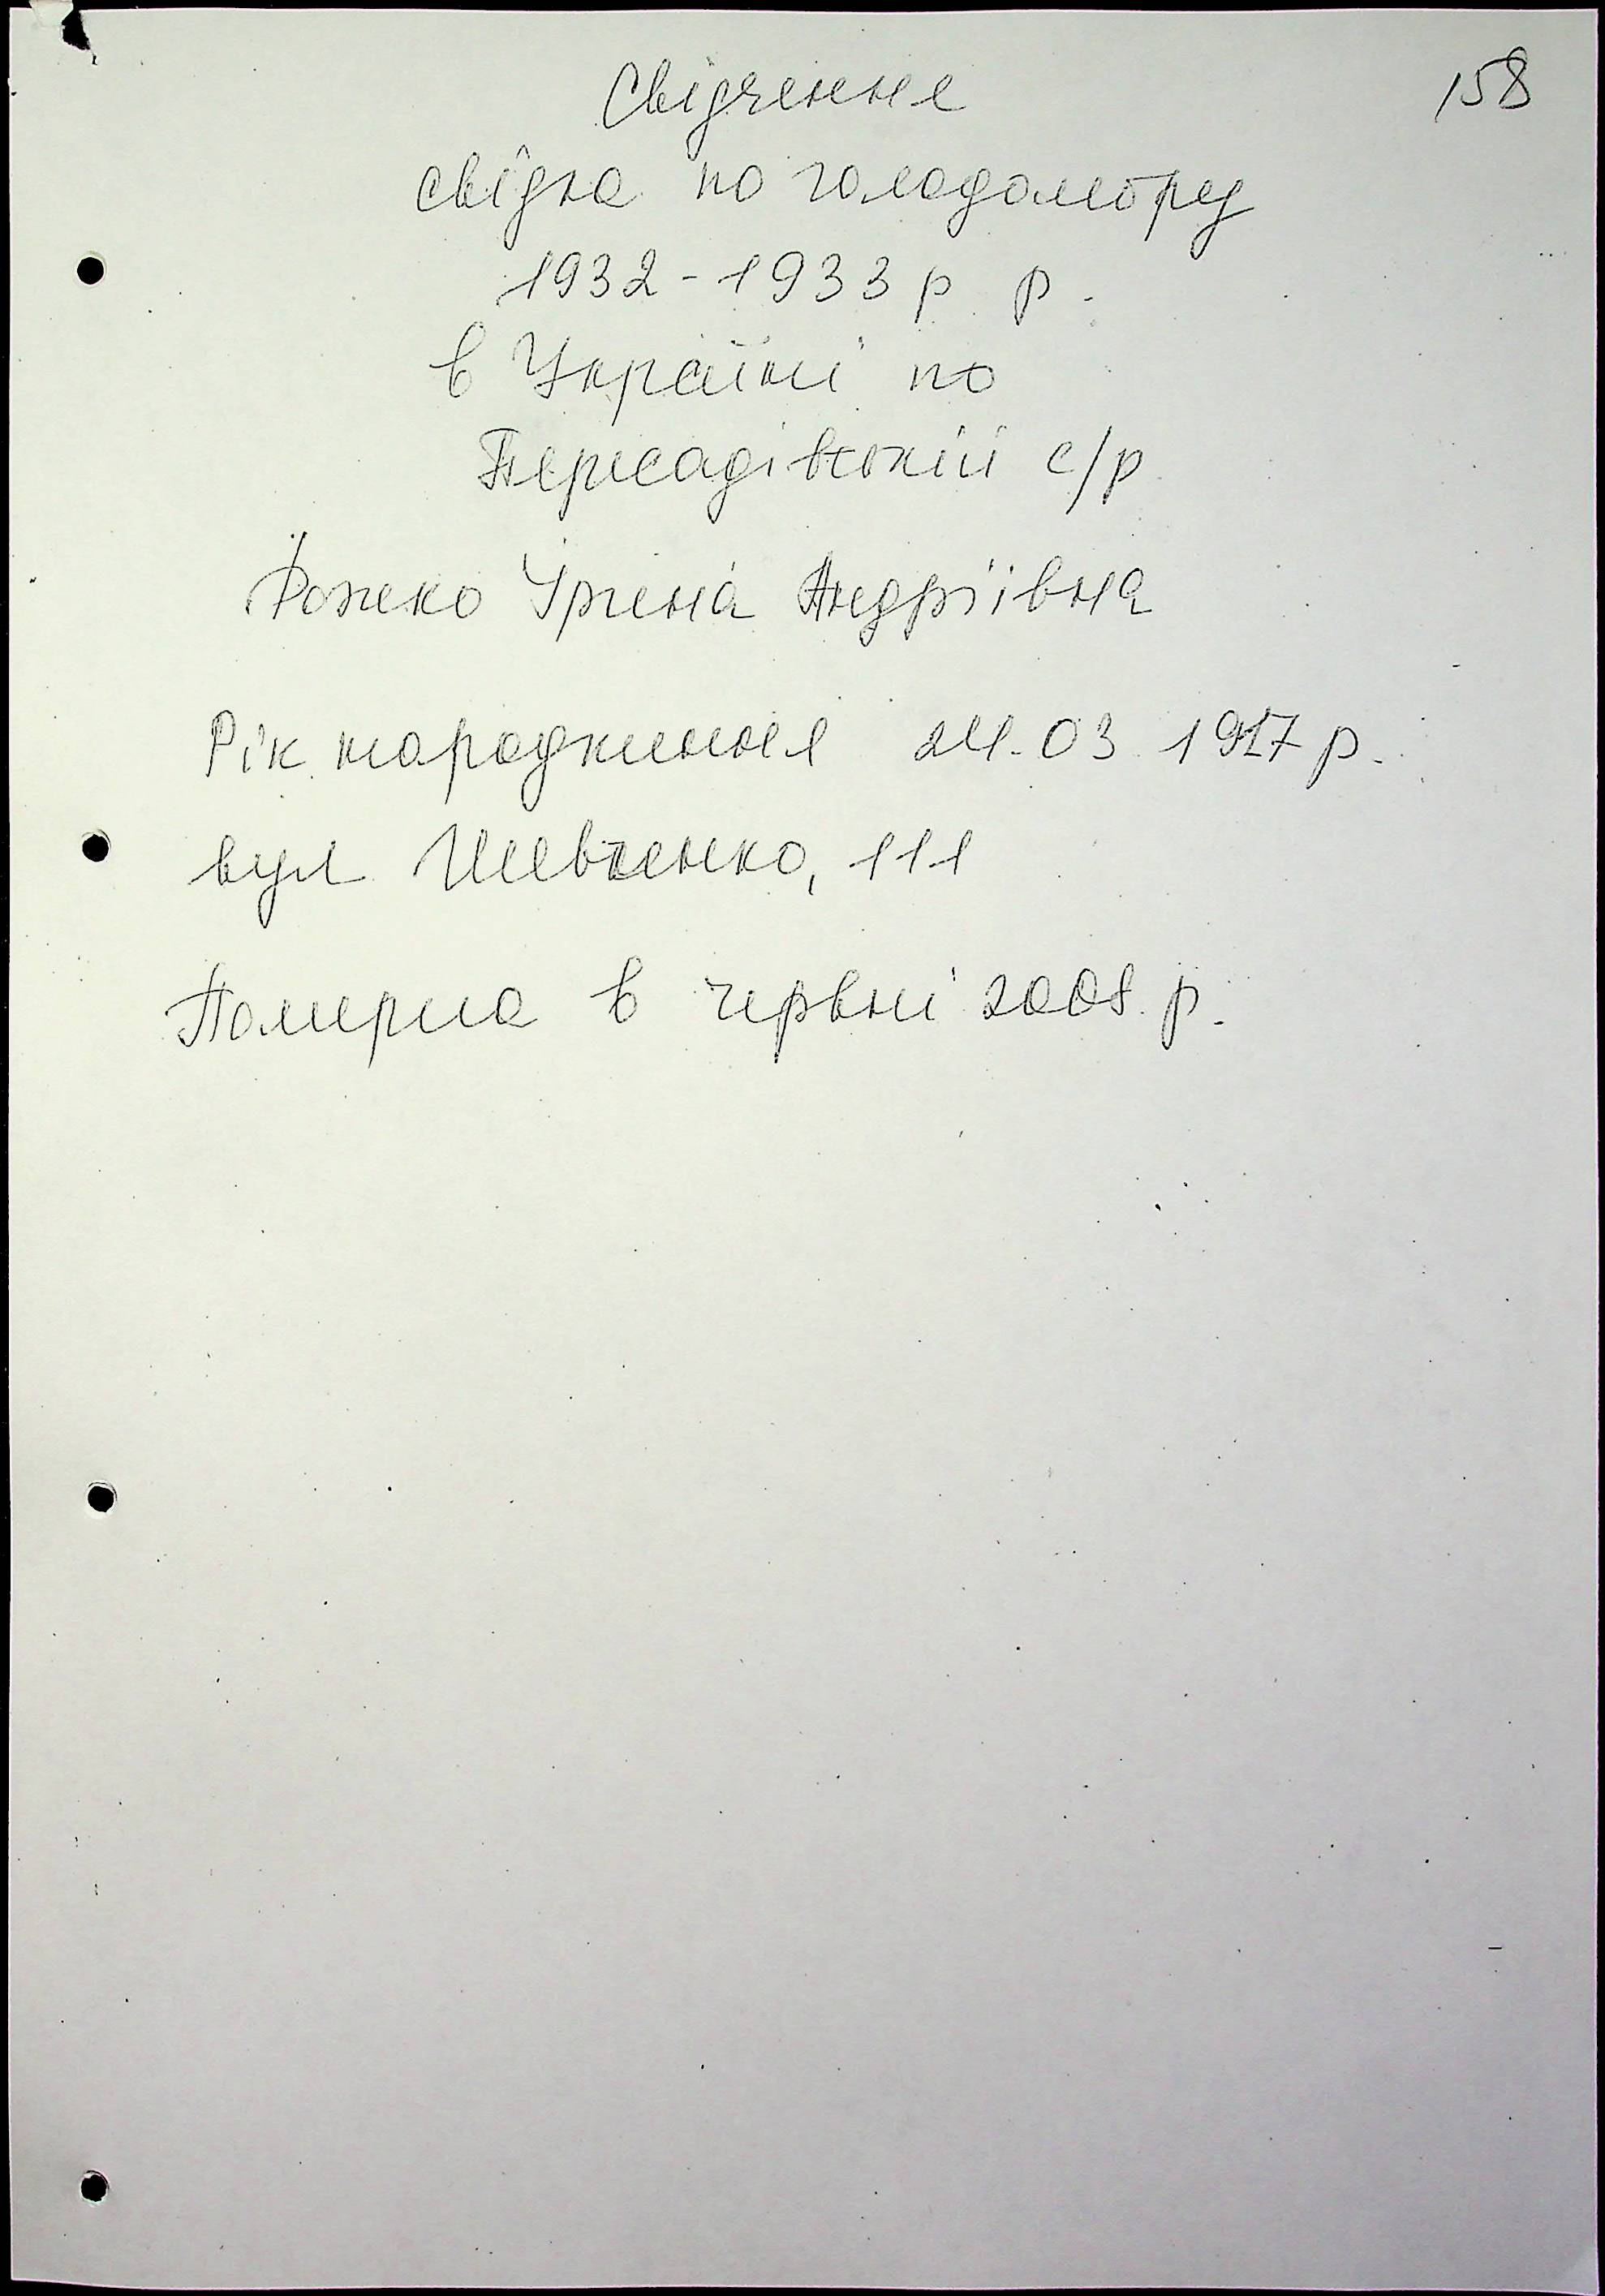 158
Свідчення
свідка по голодомору
1932-1933 р р.
в Україні по
Пересадівській с/р
Рожко Ірина Андріївна
Рік народження 24.03.1917 р.
вул Шевченко, 111
Померла в червні 2008 р.